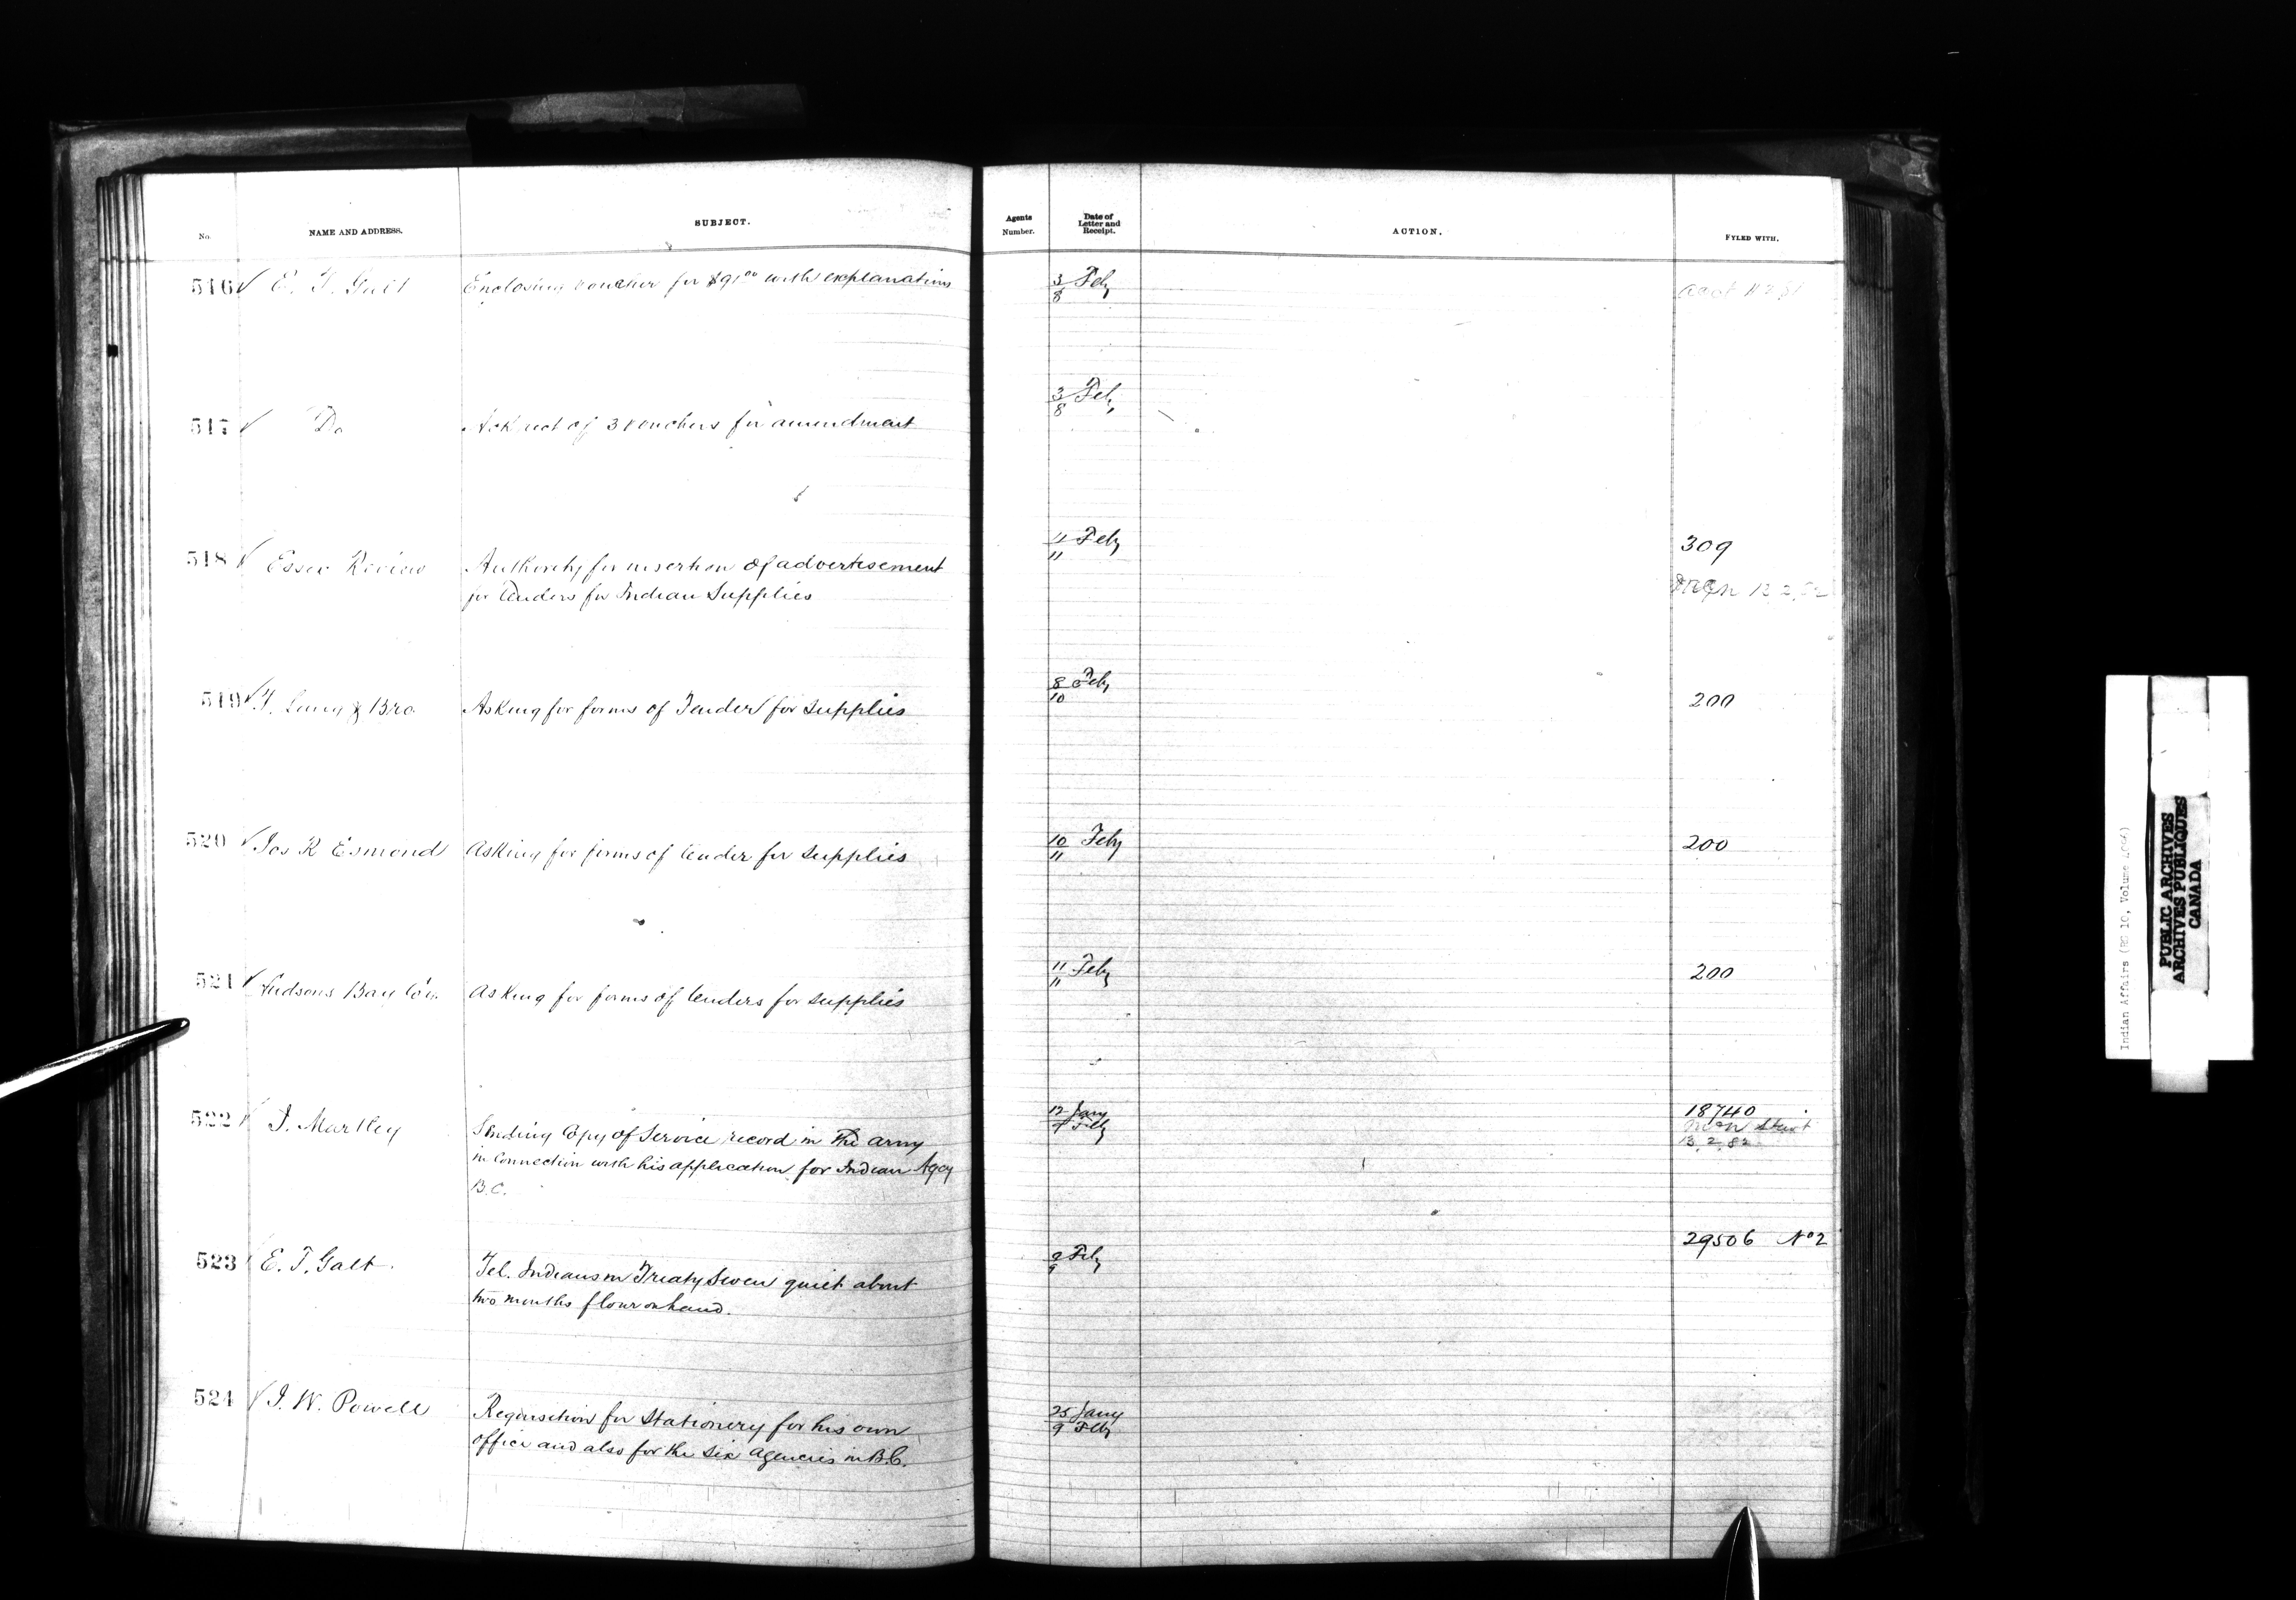 No. NAME AND ADDRESS. SUBJECT. Agents Number. Date of Letter and Receipt. ACTION. FYLED WITH.
516 E. T. Galt Enclosing voucher for $91.00 with explanations 3/8 Feby
517 Do Ack rect of 3 vouchers for amendment 3/8 Feby
518 Essex Review Authority for insertion of advertisement 11/11 Feby 309
for Tenders for Indian Supplies
519 & Bro Asking for forms of Tender for supplies 8/10 Feby 200
520 Jos R Esmond Asking for forms of tender for supplies 10/11 Feby 200
521 Hudsons Bay Co'y Asking for forms of tenders for supplies 11/11 Feby 200
522 J. Martley Sending Copy of Service record in the army 12 Jany 18740
in connection with his application for Indian Agcy Feby
B.C. 13.2.82
523 E. T. Galt. Tel. Indians in Treaty Seven quiet about 9/9 Feby 29506 No 2
two months flour on hand.
524 I. W. Powell Requisition for Stationery for his own 25 Jany
office and also for the six agencies in B.C. 9 Feby
Indian Affairs (RG 10, Volume
PUBLIC ARCHIVES
ARCHIVES PUBLIQUES
CANADA